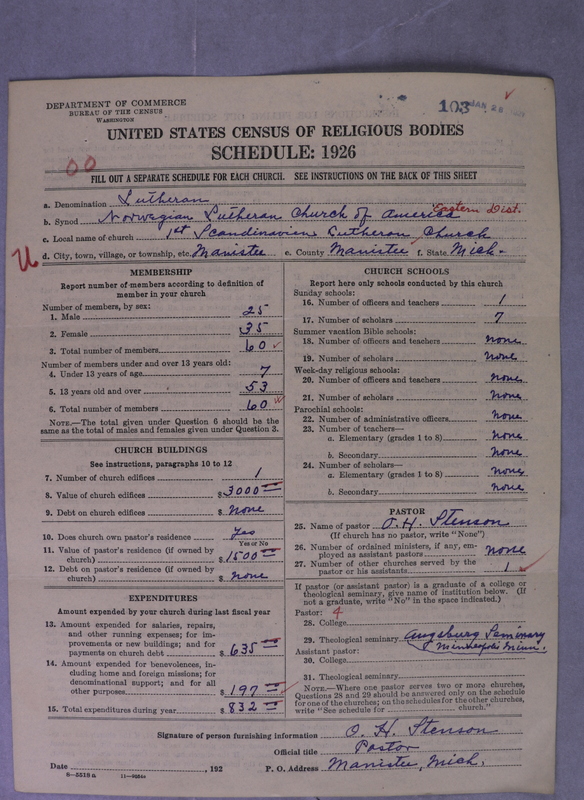 103 JAN 26
DEPARTMENT OF COMMERCE
BUREAU OF THE CENSUS
WASHINGTON
UNITED STATES CENSUS OF RELIGIOUS BODIES
SCHEDULE: 1926
00
FILL OUT A SEPARATE SCHEDULE FOR EACH CHURCH. SEE INSTRUCTIONS ON THE BACK OF THIS SHEET
a. Denomination Lutheran
b. Synod Norwegian Lutheran Church of America Eastern Dist.
c. Local name of church 1st Scandinavian Lutheran Church
U d. City, town, village, or township, etc. Manistee e. County Manistee f. State Mich.
MEMBERSHIP
Report number of members according to definition of
member in your church
Number of members, by sex:
1. Male 25
2. Female 35
3. Total number of members 60
Number of members under and over 13 years old:
4. Under 13 years of age 7
5. 13 years old and over 53
6. Total number of members 60
NOTE.—The total given under Question 6 should be
the same as the total of males and females given under Question 3.
CHURCH BUILDINGS
See instructions, paragraphs 10 to 12
7. Number of church edifices 1
8. Value of church edifices $ 3000
9. Debt on church edifices $ None
10. Does church own pastor's residence? Yes
Yes or No
11. Value of pastor's residence (if owned by
church) $ 1500
12. Debt on pastor's residence (if owned by
church) $ None
EXPENDITURES
Amount expended by your church during last fiscal year
13. Amount expended for salaries, repairs,
and other running expenses; for im-
provements or new buildings; and for
payments on church debt $ 635
14. Amount expended for benevolences, in-
cluding home and foreign missions; for
denominational support; and for all
other purposes $ 197
15. Total expenditures during year $ 832
CHURCH SCHOOLS
Report here only schools conducted by this church
Sunday schools:
16. Number of officers and teachers 1
17. Number of scholars 7
Summer vacation Bible schools:
18. Number of officers and teachers None
19. Number of scholars None
Week-day religious schools:
20. Number of officers and teachers None
21. Number of scholars None
Parochial schools:
22. Number of administrative officers None
23. Number of teachers—
a. Elementary (grades 1 to 8) None
b. Secondary None
24. Number of scholars—
a. Elementary (grades 1 to 8) None
b. Secondary None
PASTOR
25. Name of pastor O. H. Stenson
(If church has no pastor, write "None")
26. Number of ordained ministers, if any, em-
ployed as assistant pastors None
27. Number of other churches served by the
pastor or his assistants 1
If pastor (or assistant pastor) is a graduate of a college or
theological seminary, give name of institution below. (If
not a graduate, write "No" in the space indicated.)
Pastor: 4
28. College
29. Theological seminary Augsburg Seminary
Minneapolis Minn.
Assistant pastor:
30. College
31. Theological seminary
NOTE.—Where one pastor serves two or more churches,
Questions 28 and 29 should be answered only on the schedule
for one of the churches; on the schedules for the other churches,
write "See schedule for church."
Signature of person furnishing information O. H. Stenson
Official title Pastor
Date , 192 P. O. Address Manistee, Mich.
8—5518a 11—9054a